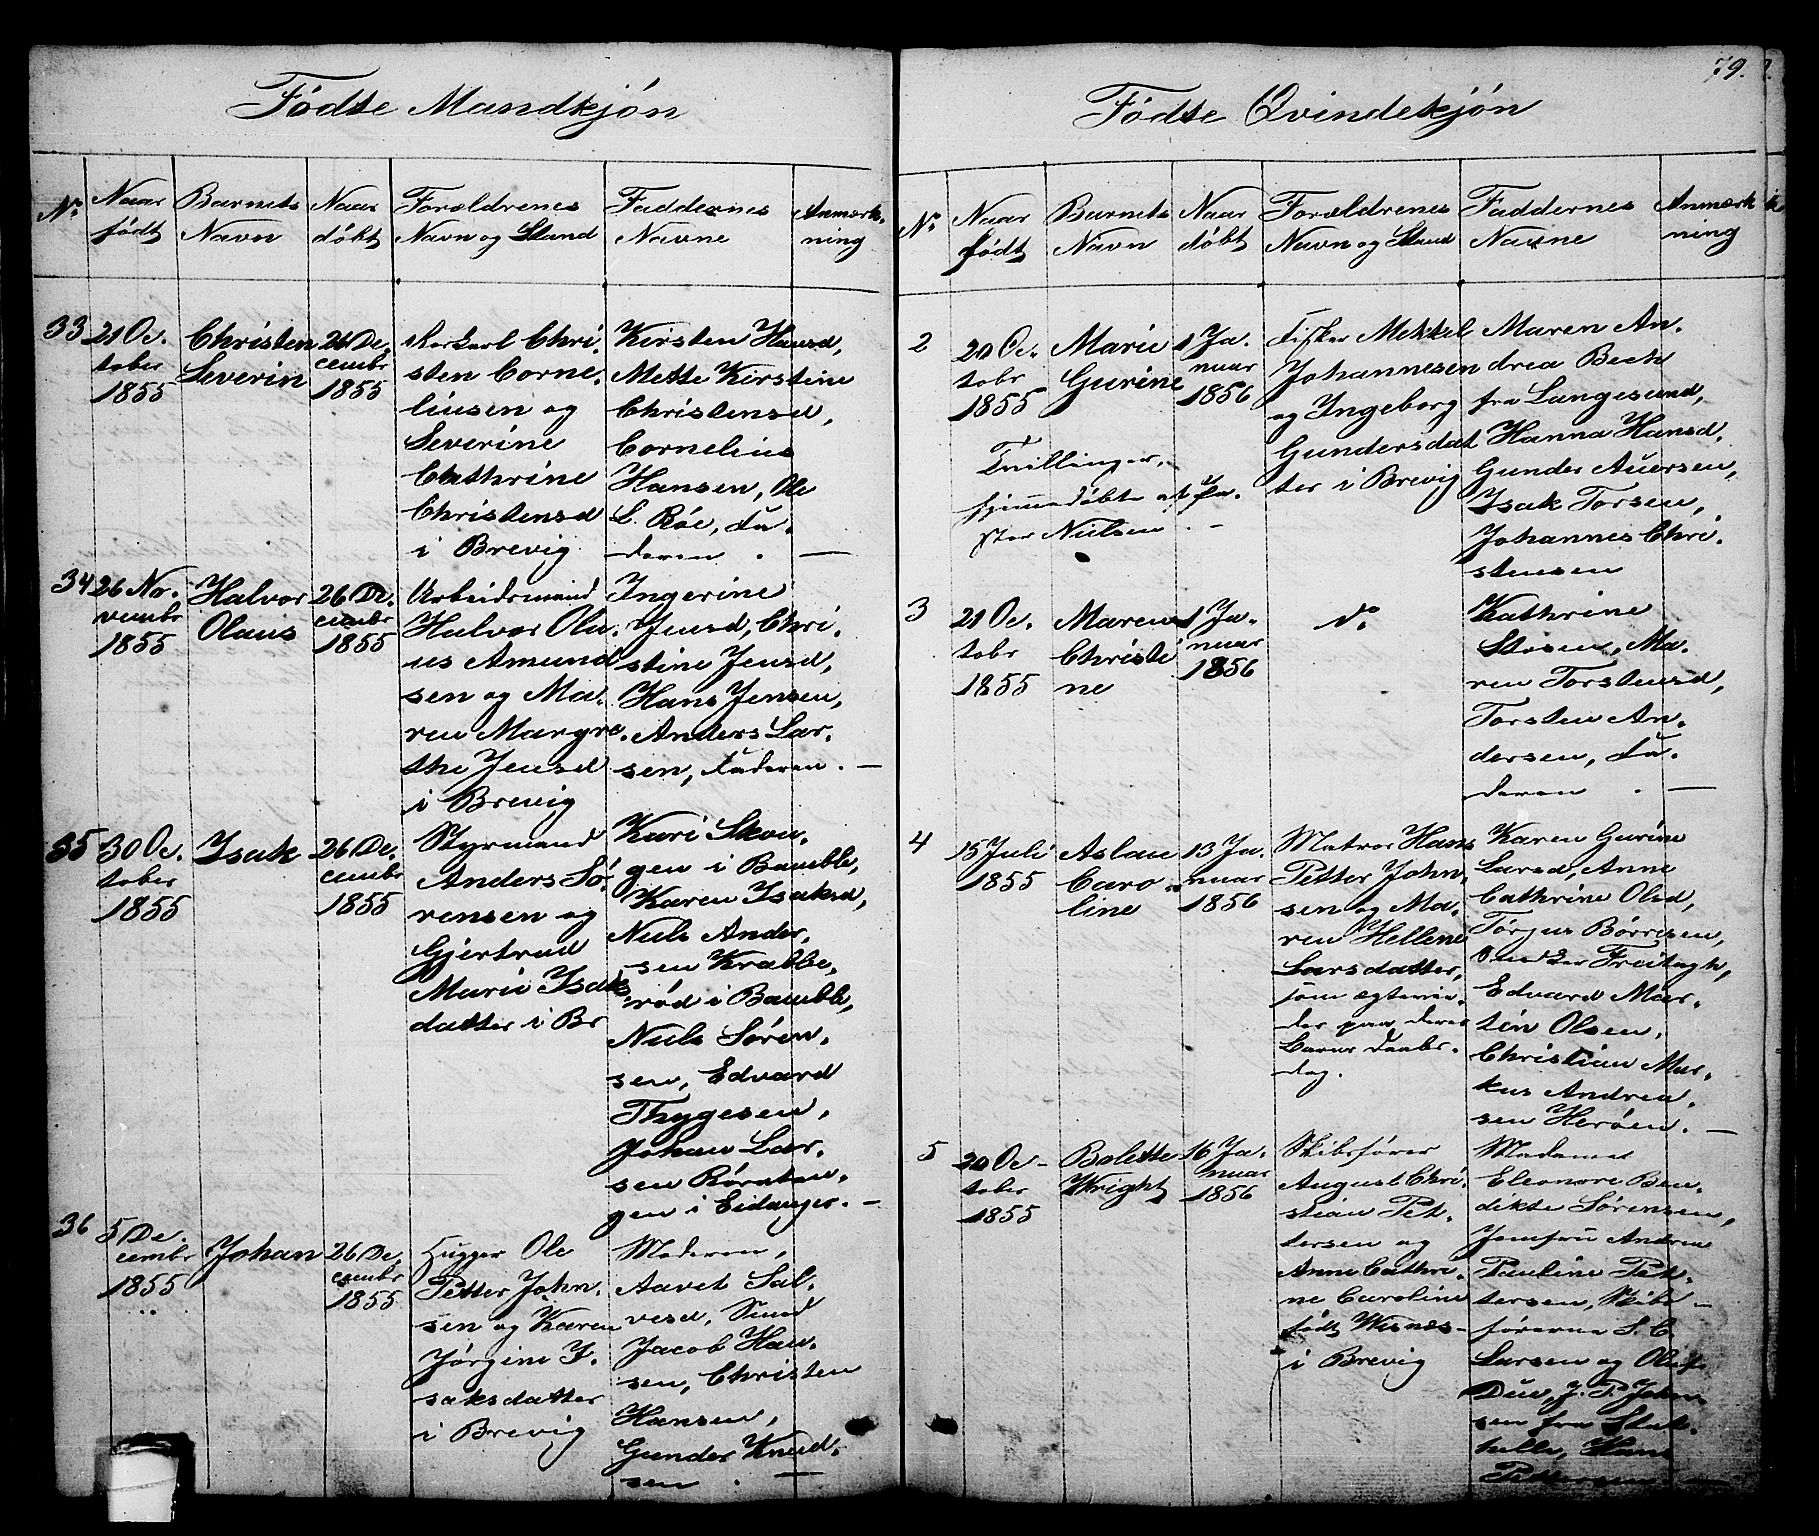 Fødte Mandkjøn
No
Naar født
Barnets Navn
Naar døbt
Forældrenes Navn og Stand
Faddernes Navne
Anmærkning
33
21 Oc.
tober
1855
Christen
Severin
26 De.
cembr
1855
Chri.
sten Corne.
liusen og
Severine
Cathrine
Christensd
i Brevig
Kirsten Hansd,
Mette Kirstine
Christensd,
Cornelius
Hansen, Ole
L. Røe, Fa.
deren . —
34
26 No.
vembr
1855
Halvor
Olaus
26 De.
cembr
1855
Arbeidsmand
Halvor Ola
us Amund
sen og Ma.
ren Margre.
the Jensd
i Brevig
Ingerine
Jensd, Chri.
stine Jensd,
Hans Jensen,
Anders Lar.
sen, Faderen. —
35
30 Oc.
tober
1855
Isak
26 De.
cembr
1855
Styrmand
Anders Sø.
rensen og
Gjertrud
Marie Isaks
datter i Br
Kari Skou.
gen i Bamble,
Karen Isaksd,
Niels Ander.
sen Krabbe.
rød i Bamble,
Niels Søren.
sen, Edvard
Thygesen,
Johan Lar.
sen Rørston.
gen i Eidanger. —
36
5 De.
cembr
1855
Johan
26 De.
cembr
1855
Hugger Ole
Petter John.
sen og Karen
Jørgine I.
saksdatter
i Brevig
Moderen,
Aavet Sal.
vesd, Sund
Jacob Han
sen, Christen
Hansen,
Gunder Knud.
sen . —
79.
Fødte Qvindekjøn
No
Naar født
Barnets Navn
Naar døbt
Forældrenes Navn og Stand
Faddernes Navne
Anmærkning
2
20 Oc.
tobr
1855
Marie
Gurine
1 Ja.
nuar
1856
Fisker Mekkel
Johannesen
og Ingeborg
Gundersdat
ter i Brevig
Maren An.
drea Beck
fra Langesund,
Hanna Hansd.
Gunder Auersen,
Isak Torsen,
Johannes Chri.
stensen
Tvillinger,
hjemmedøbte af Pa.
stor Nielsen . —
3
21 Oc.
tobr
1855
Maren
Christi
ne
1 Ja.
nuar
1856
do
Kathrine
Stosen, Ma.
ren Torstensd,
Torsten An.
dersen, Fa.
deren . —
4
15 Juli
1855
Aslau
Caro.
line
13 Ja.
nuar
1856
Matros Hans
Petter John.
sen og Ma.
ren Hellene
Larsdatter,
som ægtevie.
des paa deres
Barns Daabs.
dag.
Karen Gurine
Larsd, Anne
Cathrine Olsd,
Torjus Børresen,
Freitagh,
Edvard Mar.
tin Olsen,
Christian Mar.
kus Andrea.
sen Herøen. —
5
20 Oc-
tober
1855
Bolette
Wright
16 Ja.
nuar
1856
Skibsfører
August Chri.
stian Pet.
tersen og
Anne Cathri.
ne Caroline
født Wesnes-
i Brevig
Madame
Eleonore Ben
dikte Sørensen,
Jomfru Andrea
Pauline Pet.
tersen, Skibs-
førerne S. C.
Larsen og Oluf
Due, J. P. John.
sen fra Stat.
helle, Hans
Pettersen. —